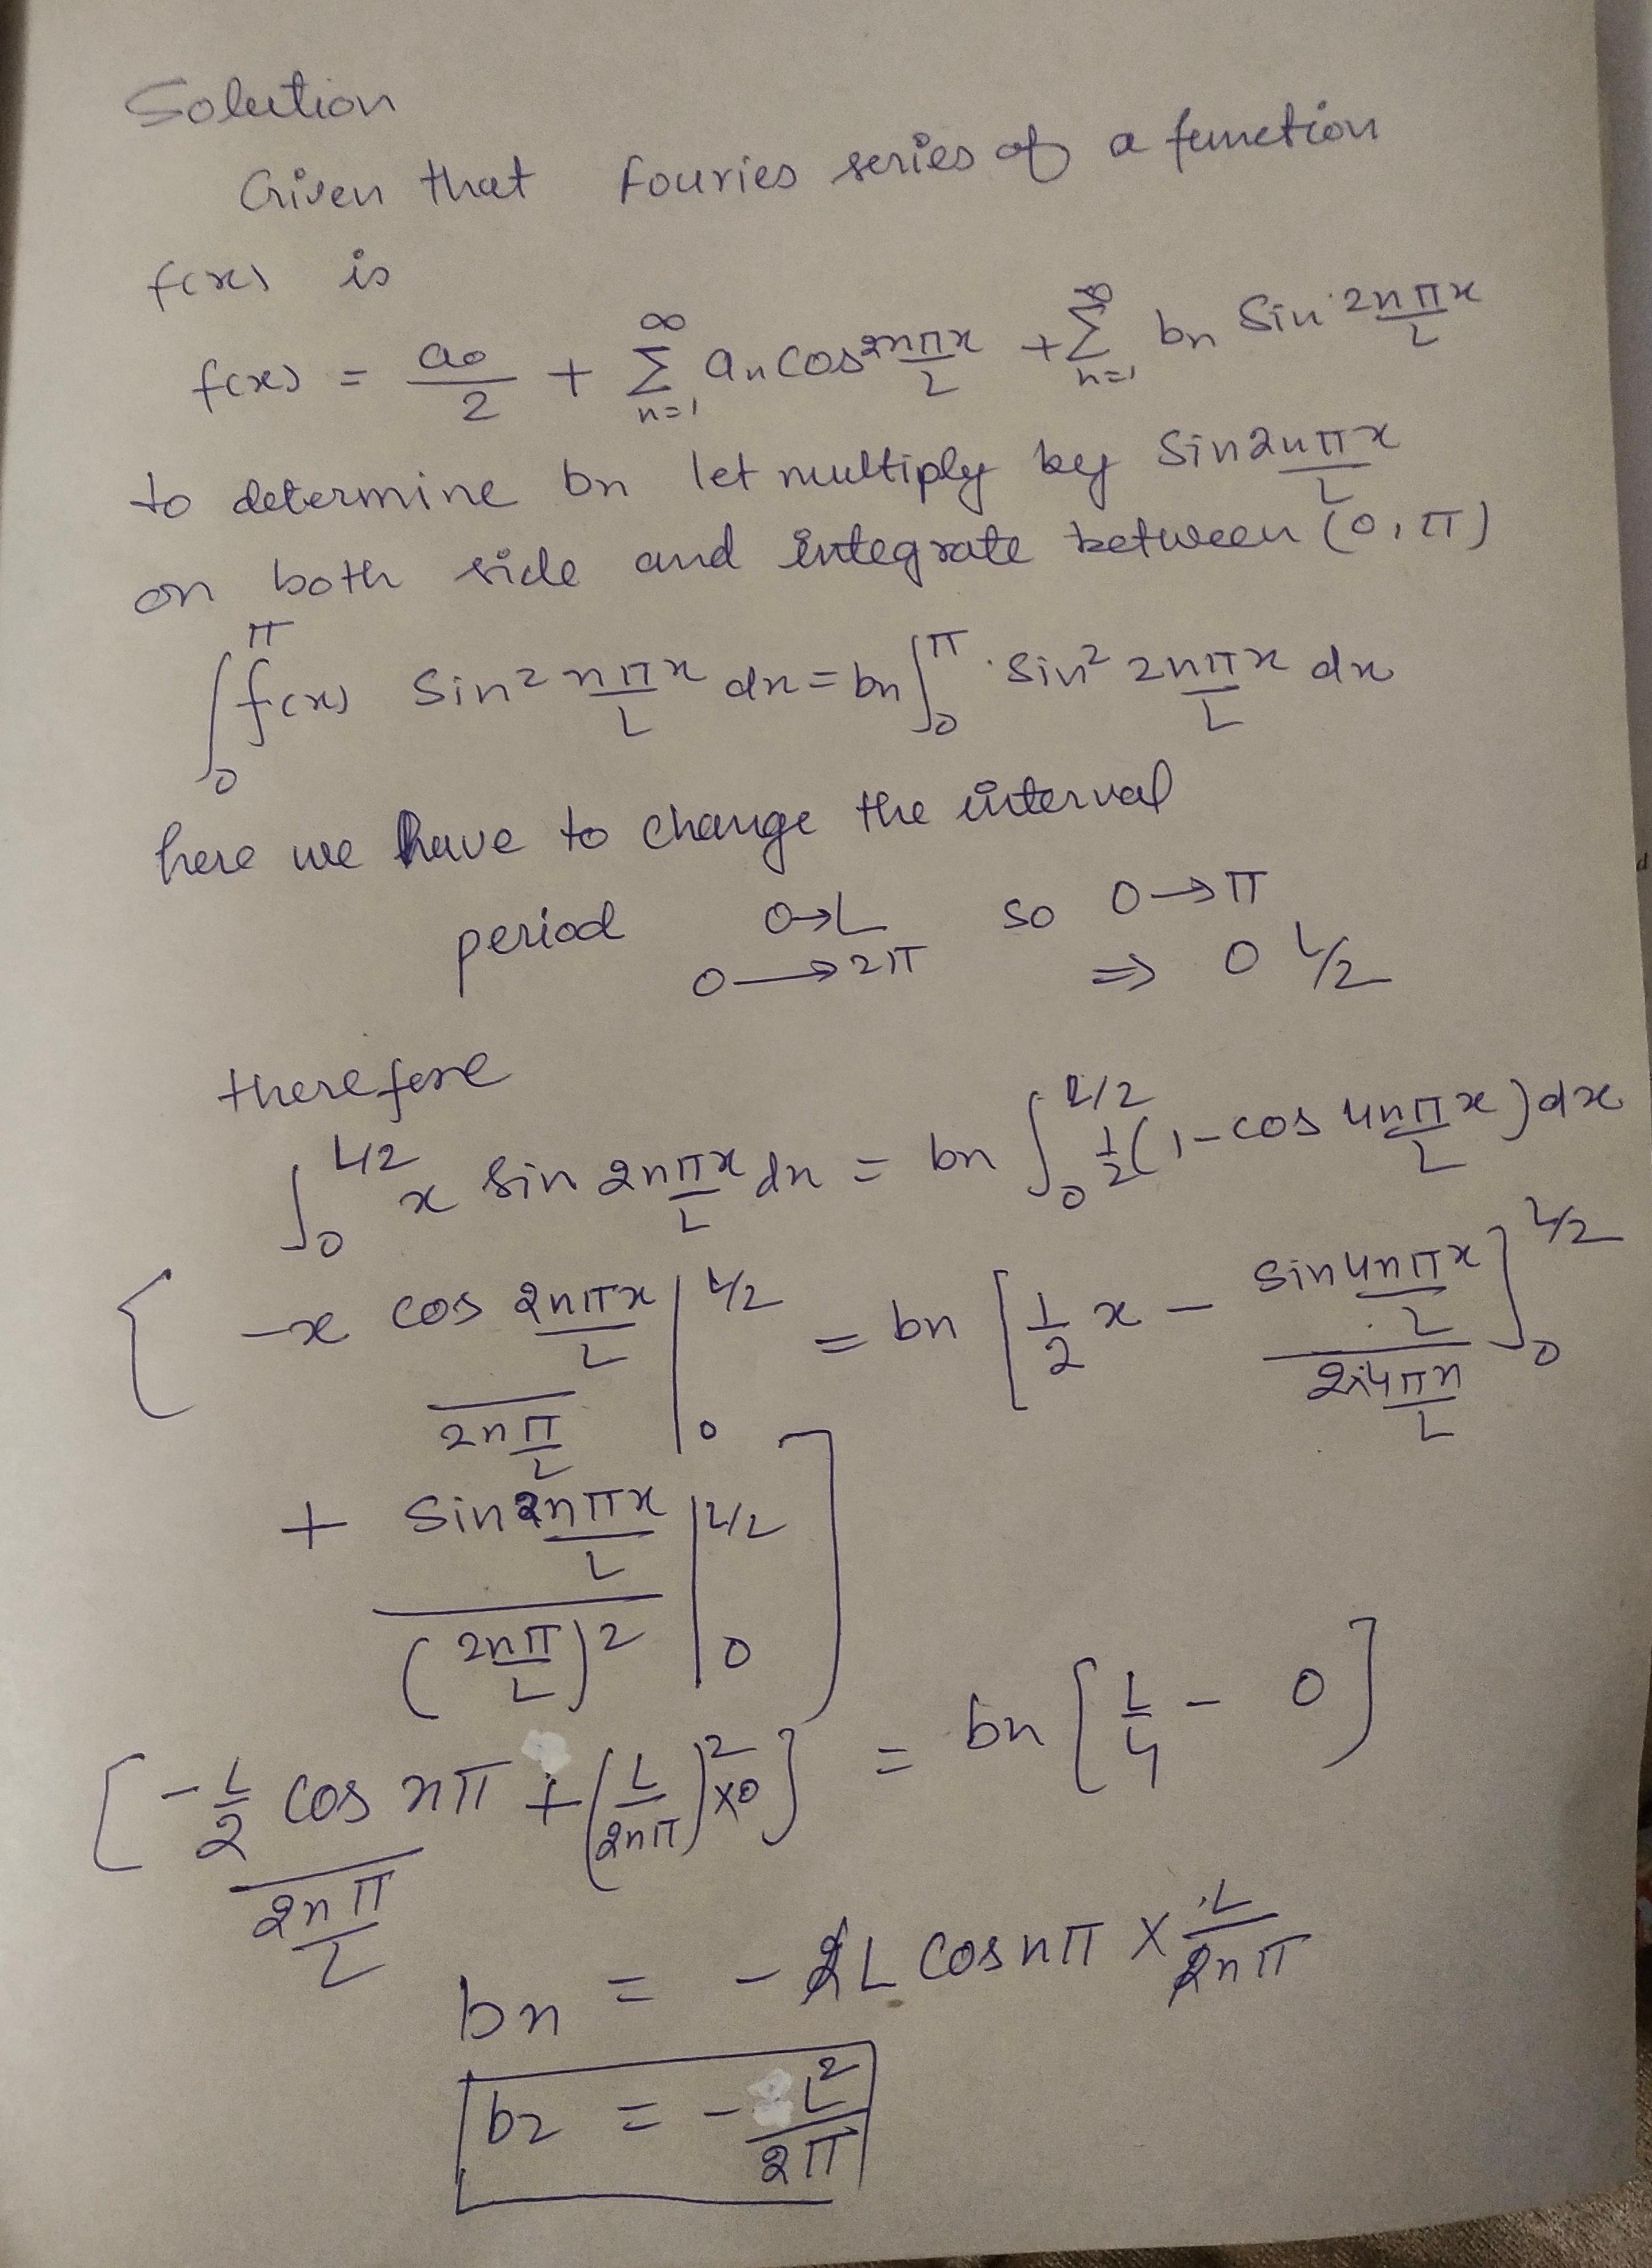 Solution
Given that Fouries series of a function
f(x) is
f(x) = a₀/2 + ∞Σn=1 an cos 2nπx/L + ∞Σn=1 bn Sin 2nπx/L
to determine bn let multiply by Sin 2nπx/L
on both side and integrate between (0, π)
∫₀^π f(x) Sin 2nπx/L dx = bn ∫₀^π Sin² 2nπx/L dx
here we have to change the interval
period 0→L so 0→π
0→2π ⇒ 0 L/2
therefore
∫₀^L/2 x sin 2nπx/L dx = bn ∫₀^L/2 1/2(1-cos 4nπx/L)dx
[ -x cos 2nπx/L / 2nπ/L |₀^L/2 = bn [1/2 x - sin 4nπx/L / 2×4πn/L]₀^L/2
+ Sin 2nπx/L / (2nπ/L)² |₀^L/2 ]
[ -L/2 cos nπ / 2nπ/L + (L/2nπ)²×0 ] = bn [L/4 - 0]
bn = -2L cos nπ × L/2nπ
b2 = -L²/2π